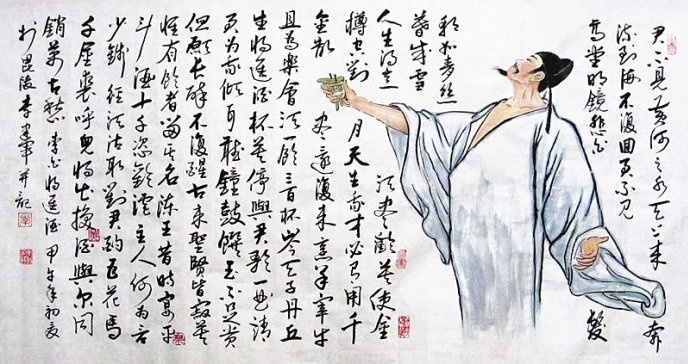 君不見黃河之水天上来奔
流到海不復回君不見
高堂明鏡悲白髮
朝如青丝
暮成雪
人生得意
須尽歡莫使金
樽空對
月天生我才必有用千
金散
尽還復来烹羊宰牛
且為樂會須一飲三百杯岑夫子丹丘
生将進酒杯莫停與君歌一曲請
君为我傾耳聽鐘鼓饌玉不足贵
但願長醉不復醒古来聖賢皆寂寞
惟有飲者留其名陳王昔時宴平
斗酒十千恣歡謔主人何为言
少錢徑須沽取對君酌五花馬
千金裘呼兒将出換酒與尔同
銷萬古愁 李白将進酒 甲午年初夏
於毘陵李軍并記